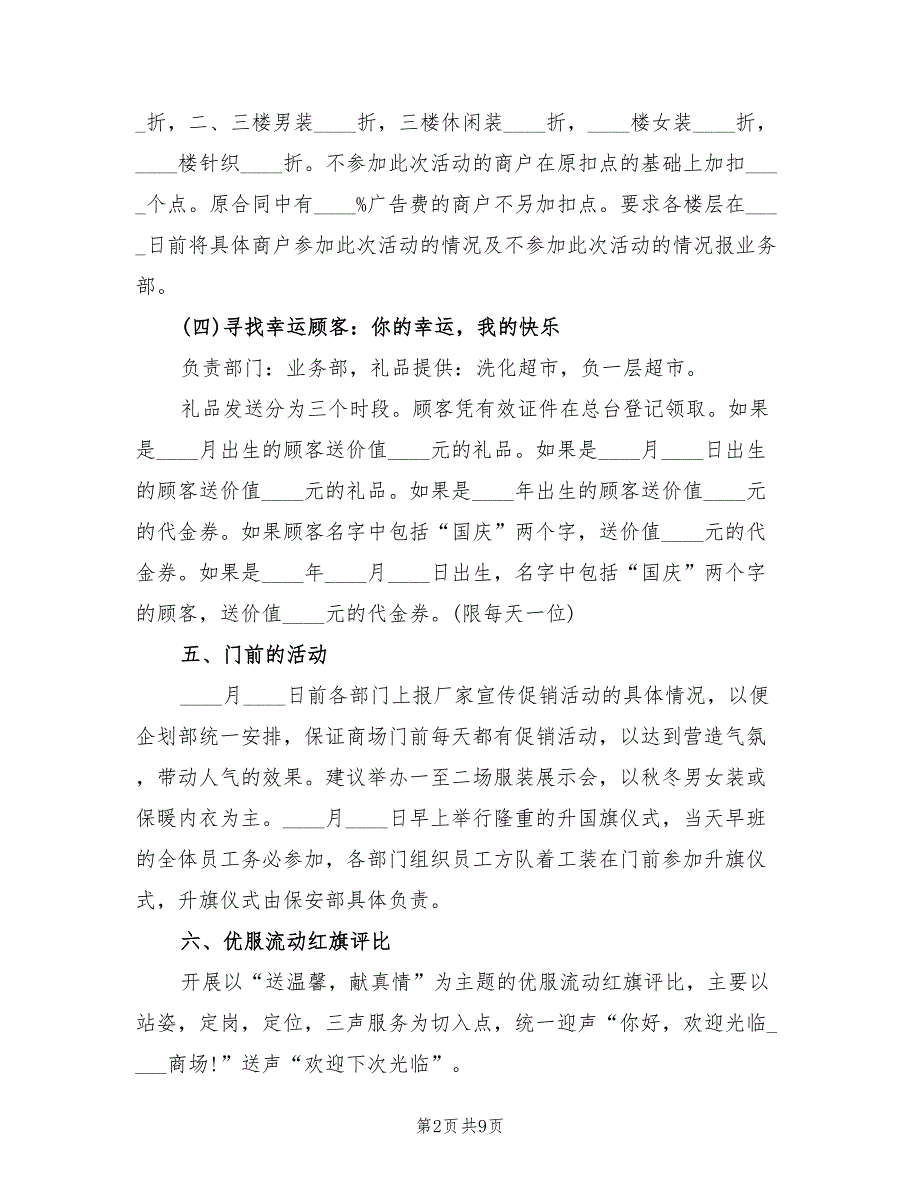 _折，二、三楼男装____折，三楼休闲装____折，____楼女装____折，
____楼针织____折。不参加此次活动的商户在原扣点的基础上加扣___
_个点。原合同中有____%广告费的商户不另加扣点。要求各楼层在___
_日前将具体商户参加此次活动的情况及不参加此次活动的情况报业务
部。
(四)寻找幸运顾客：你的幸运，我的快乐
负责部门：业务部，礼品提供：洗化超市，负一层超市。
礼品发送分为三个时段。顾客凭有效证件在总台登记领取。如果
是____月出生的顾客送价值____元的礼品。如果是____月____日出生
的顾客送价值____元的礼品。如果是____年出生的顾客送价值____元
的代金券。如果顾客名字中包括“国庆”两个字，送价值____元的代
金券。如果是____年____月____日出生，名字中包括“国庆”两个字
的顾客，送价值____元的代金券。(限每天一位)
五、门前的活动
____月____日前各部门上报厂家宣传促销活动的具体情况，以便
企划部统一安排，保证商场门前每天都有促销活动，以达到营造气氛
，带动人气的效果。建议举办一至二场服装展示会，以秋冬男女装或
保暖内衣为主。____月____日早上举行隆重的升国旗仪式，当天早班
的全体员工务必参加，各部门组织员工方队着工装在门前参加升旗仪
式，升旗仪式由保安部具体负责。
六、优服流动红旗评比
开展以“送温馨，献真情”为主题的优服流动红旗评比，主要以
站姿，定岗，定位，三声服务为切入点，统一迎声“你好，欢迎光临_
___商场!”送声“欢迎下次光临”。
第2页共9页